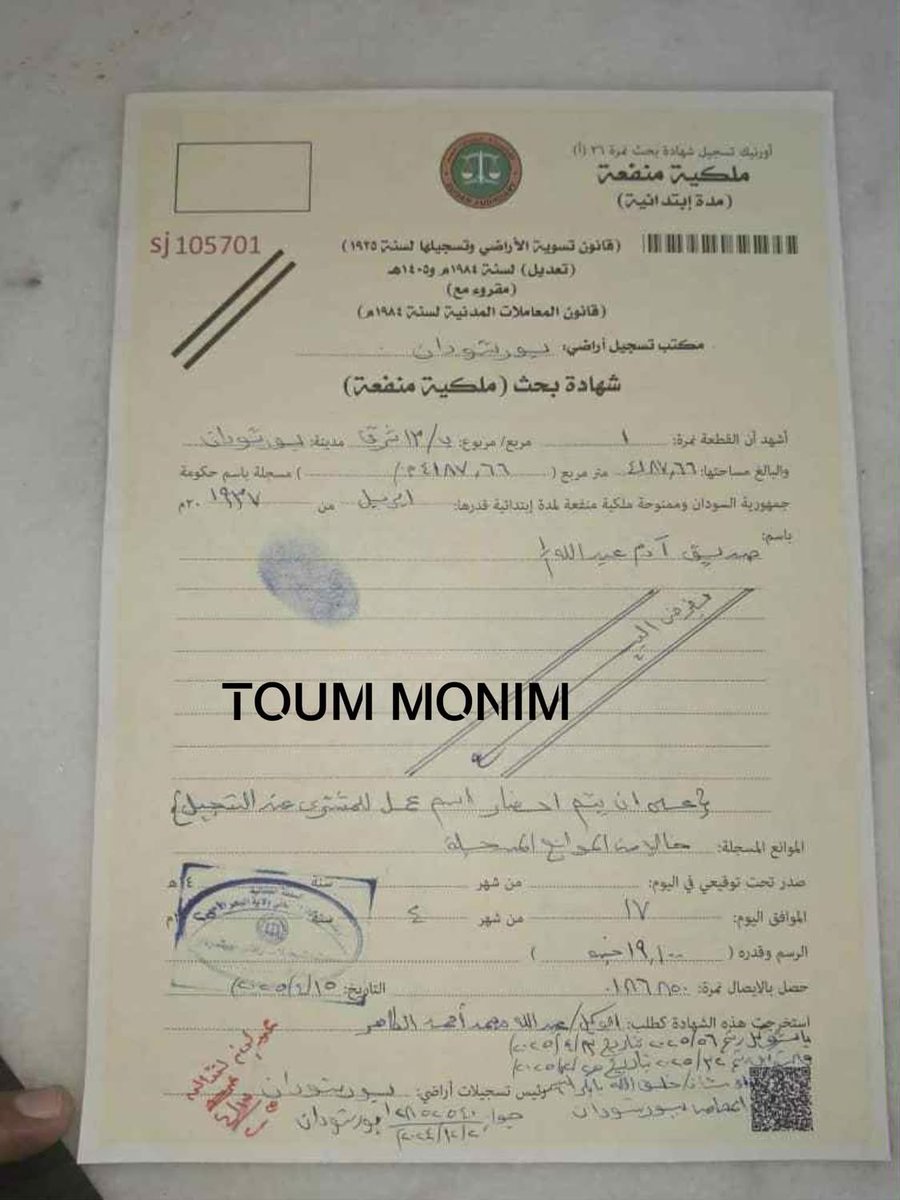 أورنيك تسجيل شهادة بحث نمرة ٢٦ (أ)
ملكية منفعة
(مدة إبتدائية)
sj 105701
(قانون تسوية الأراضي وتسجيلها لسنة ١٩٢٥)
(تعديل) لسنة ١٩٨٤م و١٤٠٥هـ
(مقروء مع)
(قانون المعاملات المدنية لسنة ١٩٨٤م)
مكتب تسجيل أراضي: بورتسودان
شهادة بحث (ملكية منفعة)
أشهد أن القطعة نمرة: ١ مربع/ مربوع: ب/١٣ شرق مدينة: بورتسودان
والبالغ مساحتها: ٤١٨٧,٦٦ متر مربع ( ٤١٨٧,٦٦م/ ) مسجلة باسم حكومة
جمهورية السودان وممنوحة ملكية منفعة لمدة إبتدائية قدرها: ابريل من ١٩٣٧ ٢٠م
باسم:
صديق آدم عبدالله
بغرض البيع
TOUM MONIM
على ان يتم احضار اسم عمل للمشتري عند التسجيل
الموانع المسجلة: خالية من الموانع المسجلة
صدر تحت توقيعي في اليوم: من شهر سنة ١٤هـ
الموافق اليوم: ١٧ من شهر ٤ سنة:
الرسم وقدره ( ١٩,١٠٠ جنيه )
حصل بالايصال نمرة: ٠١٨٦٨٥٠ التاريخ: ٢٠٢٥/٤/١٥
استخرجت هذه الشهادة كطلب: الوكيل/عبدالله محمد أحمد الطاهر
رئيس تسجيلات أراضي: بورتسودان
بورتسودان